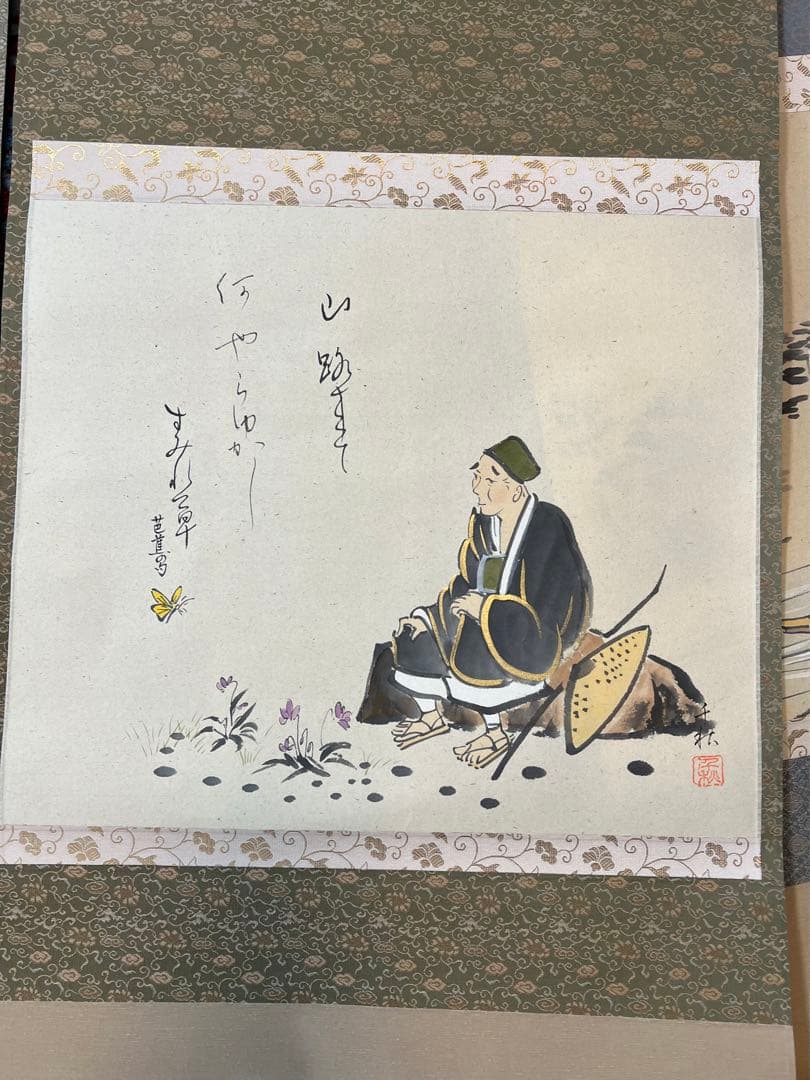 山路きて
何やらゆかし
すみれ草
芭蕉
千秋
千秋